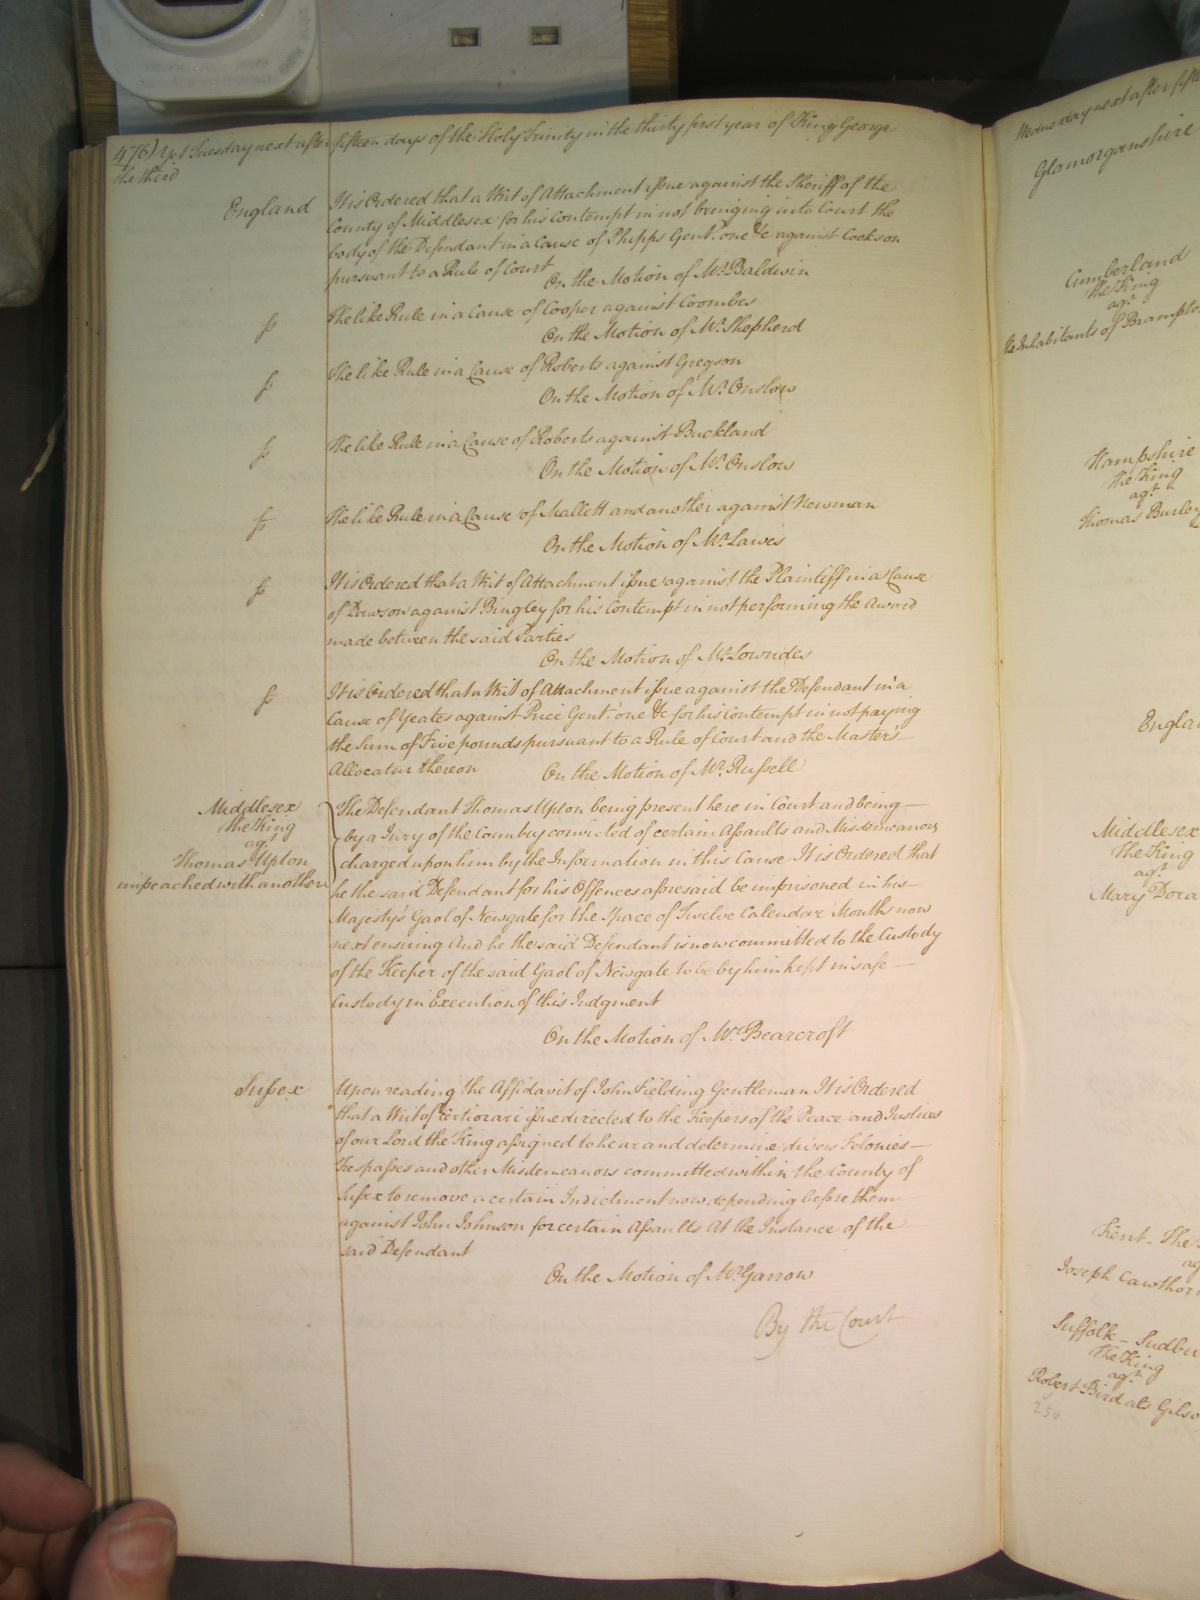 476) Yet Tuesday next after fifteen days of the Holy Trinity in the thirty first year of King George
the third
England
It is Ordered that a Writ of Attachment issue against the Sheriff of the
County of Middlesex for his Contempt in not bringing into Court the
body of the Defendant in a Cause of Phipps Gent. one &c against Cookson
pursuant to a Rule of Court
On the Motion of Mr. Baldwin
The like Rule in a Cause of Cooper against Coombes
On the Motion of Mr. Shepherd
The like Rule in a Cause of Roberts against Gregson
On the Motion of Mr. Onslow
The like Rule in a Cause of Roberts against Buckland
On the Motion of Mr. Onslow
The like Rule in a Cause of Mallett and another against Newman
On the Motion of Mr. Lawes
It is Ordered that a Writ of Attachment issue against the Plaintiff in a Cause
of Dawson against Bingley for his Contempt in not performing the Award
made between the said Parties
On the Motion of Mr. Lowndes
It is Ordered that a Writ of Attachment issue against the Defendant in a
Cause of Yeates against Price Gent. one &c for his Contempt in not paying
the Sum of Five pounds pursuant to a Rule of Court and the Master's
Allocatur thereon
On the Motion of Mr. Russell
Middlesex
The King
agt.
Thomas Upton
impeached with another
The Defendant Thomas Upton being present here in Court and being
by a Jury of the Country convicted of certain Assaults and Misdemeanors
charged upon him by the Information in this Cause It is Ordered that
he the said Defendant for his Offences aforesaid be imprisoned in his
Majesty's Gaol of Newgate for the Space of Twelve Calendar Months now
next ensuing And he the said Defendant is now committed to the Custody
of the Keeper of the said Gaol of Newgate to be by him kept in safe
Custody in Execution of this Judgment
On the Motion of Mr. Bearcroft
Sussex
Upon reading the Affidavit of John Fielding Gentleman It is Ordered
that a Writ of Certiorari issue directed to the Keepers of the Peace and Justices
of our Lord the King assigned to hear and determine divers Felonies
Trespasses and other Misdemeanors committed within the County of
Sussex to remove a certain Indictment now depending before them
against John Johnson for certain Assaults At the Instance of the
said Defendant
On the Motion of Mr. Garrow
By the Court
Wednesday next after
Glamorganshire
Cumberland
The King
agt.
the Inhabitants of Brampton
Hampshire
The King
agt.
Thomas Burley
Englan
Middlesex
The King
agt.
Mary Dora
Kent - The
ag
Joseph Cawthor
Suffolk - Sudbu
The King
agt.
Robert Bird als Gilso
256